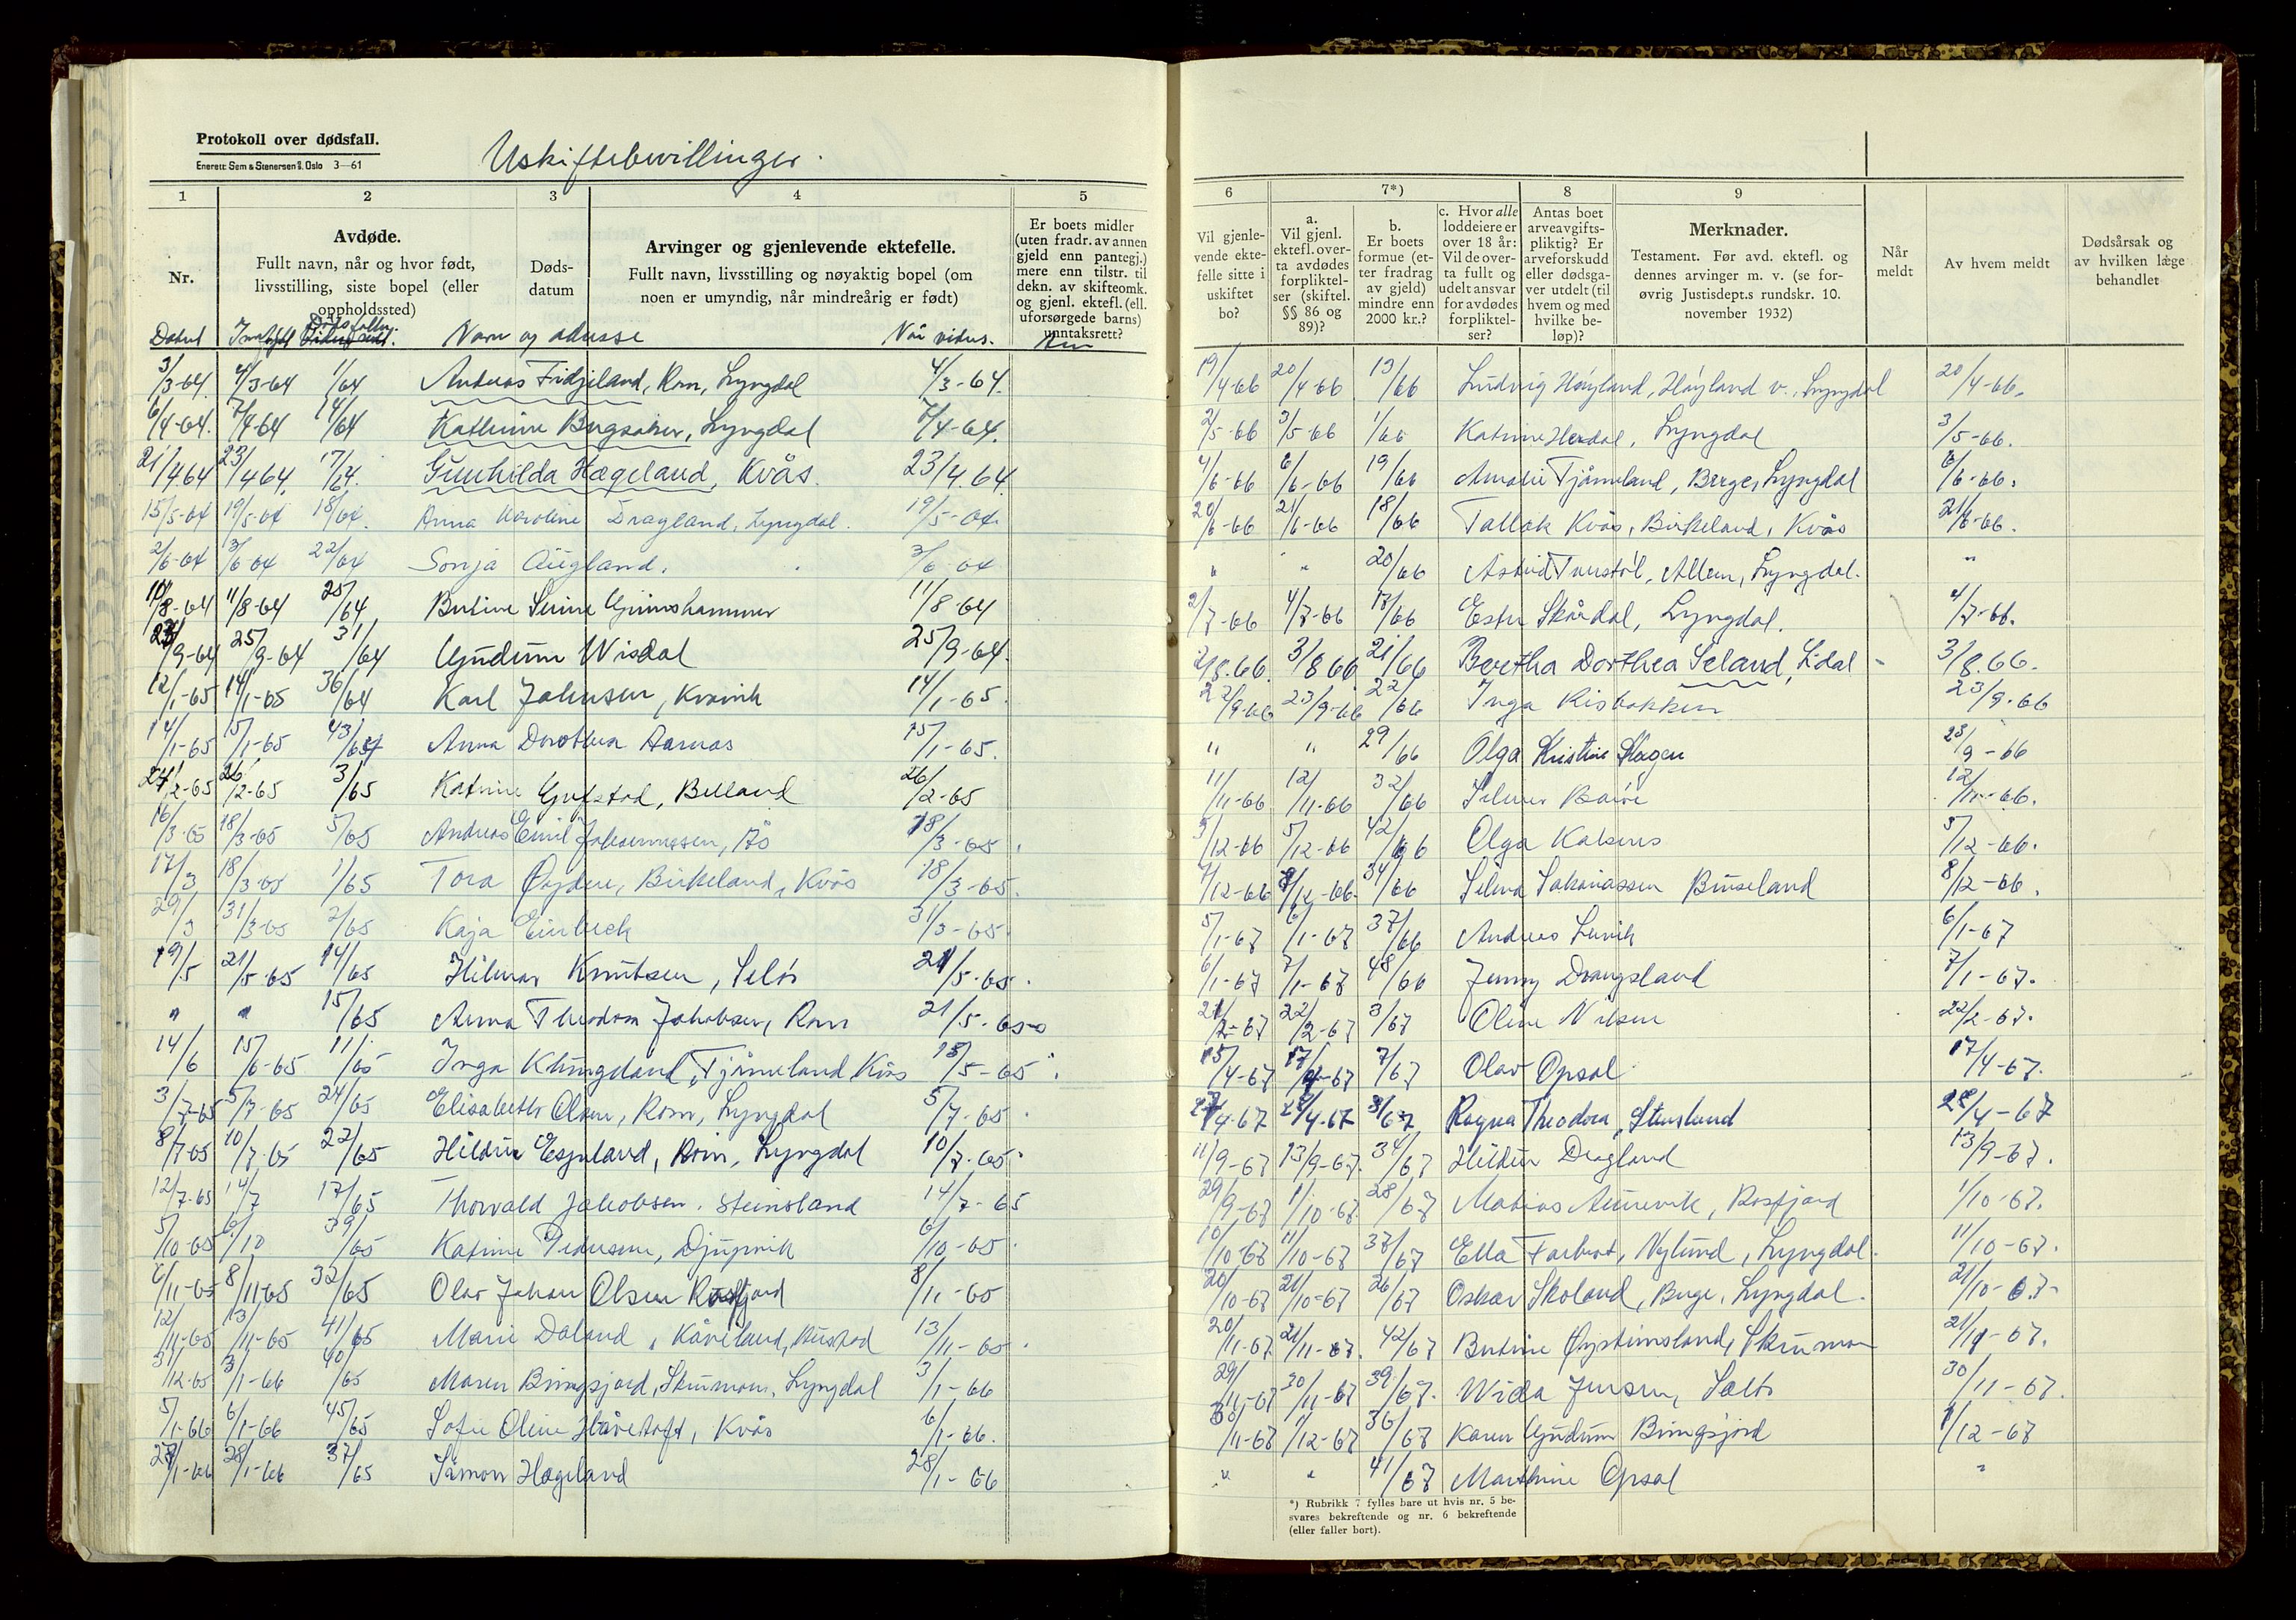 Protokoll over dødsfall.
Enerett: Sem & Stenersen A/S, Oslo 3—61
Uskiftebevillinger.
1 2 3 4 5
Nr.
Avdøde.
Fullt navn, når og hvor født,
livsstilling, siste bopel (eller
oppholdssted)
Døds-
datum
Arvinger og gjenlevende ektefelle.
Fullt navn, livsstilling og nøyaktig bopel (om
noen er umyndig, når mindreårig er født)
Er boets midler
(uten fradr. av annen
gjeld enn pantegj.)
mere enn tilstr. til
dekn. av skifteomk.
og gjenl. ektef. (ell.
uforsørgede barns)
unntaksrett?
Datert Navn og adresse Når
3/3-64 4/3-64 1/64 Andreas Fidjeland, Rom, Lyngdal 4/3-64.
6/4-64. 7/4-64 14/64 Kathrine Bugsåker, Lyngdal 7/4-64.
21/4 64 23/4 64. 17/64. Gunhilda Hægeland, Kvås. 23/4 64.
15/5-64 19/5-64 18/64. Anna Karoline Dragland, Lyngdal. 19/5-64.
2/6-64 3/6-64 22/64 Sonja Augland. 3/6-64
10/8-64 11/8-64 25/64 Grimshammer 11/8-64
/9-64 25/9-64 31/64 Gudrun Wisdal 25/9-64.
12/1-65 14/1-65 36/64 Karl Johnsen, Kvavik 14/1-65.
14/1-65 15/1-65 43/64 Anna Dorothea Aarnes 15/1-65.
24/2-65 26/2-65 3/65 Katrine, Belland 26/2-65
16/3-65 18/3-65 5/65 Andreas Emil Johannesen, Ås 18/3-65.
17/3 18/3-65 1/65 Tora Øydne, Birkeland, Kvås 18/3-65.
29/3 31/3-65 2/65 Kaja Einbeck 31/3-65.
19/5 21/5-65 14/65 Hilmar Knutsen, Selør 21/5-65.
" " 15/65 Anna Theodora Jakobsen, Rom 21/5-65
14/6 15/6-65 11/65 Inga Klungeland, Tjåmeland Kvås 15/5-65.
3/7-65 5/7-65 24/65 Elisabeth Olsen, Rom, Lyngdal 5/7-65.
8/7-65 10/7-65 22/65 Hildur Espeland, Rom, Lyngdal 10/7-65.
12/7-65 14/7 17/65 Thorvald Jakobsen. Steinsland 14/7-65
5/10-65 6/10 39/65 Katrine Pedersen, Djupvik 6/10-65.
6/11-65 8/11-65 32/65 Olav Johan Olsen Rosfjord 8/11-65
12/11-65 13/11-65 41/65 Marie Døland, Kåveland, 13/11-65.
31/12-65 3/1-66 40/65 Maren Bringsjord, Skrumoen, Lyngdal 3/1-66
5/1-66 6/1-66 45/65 Sofie Oline Håvetoft, Kvås 6/1-66.
27/1-66 28/1-66 37/65 Simon Hægeland 28/1-66
6 7*) 8 9
Vil gjenle-
vende ekte-
felle sitte i
uskiftet
bo?
a.
Vil gjenl.
ektefl. over-
ta avdødes
forpliktel-
ser (skiftel.
§§ 86 og
89)?
b.
Er boets
formue (et-
ter fradrag
av gjeld)
mindre enn
2000 kr.?
c. Hvor alle
loddeiere er
over 18 år:
Vil de over-
ta fullt og
udelt ansvar
for avdødes
forpliktel-
ser?
Antas boet
arveavgifts-
pliktig? Er
arveforskudd
eller dødsga-
ver utdelt (til
hvem og med
hvilke be-
løp)?
Merknader.
Testament. Før avd. ektefl. og
dennes arvinger m. v. (se for-
øvrig Justisdept.s rundskr. 10.
november 1932)
Når
meldt
Av hvem meldt
Dødsårsak og
av hvilken læge
behandlet
19/4-66 20/4-66 13/66 Ludvig Høyland, Høyland v., Lyngdal 20/4-66.
2/5-66 3/5-66 1/66 Katrine Herdal, Lyngdal 3/5-66.
4/6-66 6/6-66 19/66 Amalie Tjåmeland, Berge, Lyngdal 6/6-66.
20/6-66 21/6-66 18/66 Tallak Kvås, Birkeland, Kvås 21/6-66.
" " 20/66 Astrid, Lyngdal. "
2/7-66 4/7-66 17/66 Ester Skårdal, Lyngdal. 4/7-66.
2/8.66. 3/8 66 21/66 Bertha Dorthea Seland, L-dal - 3/8.66.
22/9-66 23/9-66 22/66 Inga Risbakken 23/9-66
" " 29/66 Olga Kristine Hagen 23/9-66
11/11-66 12/11-66 32/66 12/11-66.
3/12-66 5/12-66 42/66 Olga 5/12-66.
7/12-66 8/12-66. 34/66 Selma Sakariassen Bruseland 8/12-66.
5/1-67 6/1-67 37/66 Andreas 6/1-67
6/1-67 7/1-67 48/66 Jenny Drangsland 7/1-67.
21/2-67 22/2-67 3/67 Oline Nilsen 22/2-67.
15/4-67 17/4-67 7/67 Olav Opsal 17/4-67.
27/4-67 28/4-67 8/67 Ragna Theodora Stensland 28/4-67
11/9-67 13/9-67. 34/67 Hildur Dragland 13/9-67.
29/9-67 1/10-67 28/67 Mathias Aunevik, Rosfjord 1/10-67.
10/10-67 11/10-67 37/67 Ella Farbrot, Nylund, Lyngdal. 11/10-67.
20/10-67 21/10-67 26/67 Oskar Skoland, Berge, Lyngdal. 21/10-67-
20/11-67 21/11-67. 42/67 Bertine Øysteinsland, Skrumoen 21/11-67.
29/11-67 30/11-67 39/67. Wida Jensen, 30/11-67.
30/11-67 1/12-67 36/67 Karen Gudrun Bringsjord 1/12-67
" " 41/67 Marthine Opsal "
*) Rubrikk 7 fylles bare ut hvis nr. 5 be-
svares bekreftende og nr. 6 bekreftende
(eller faller bort).